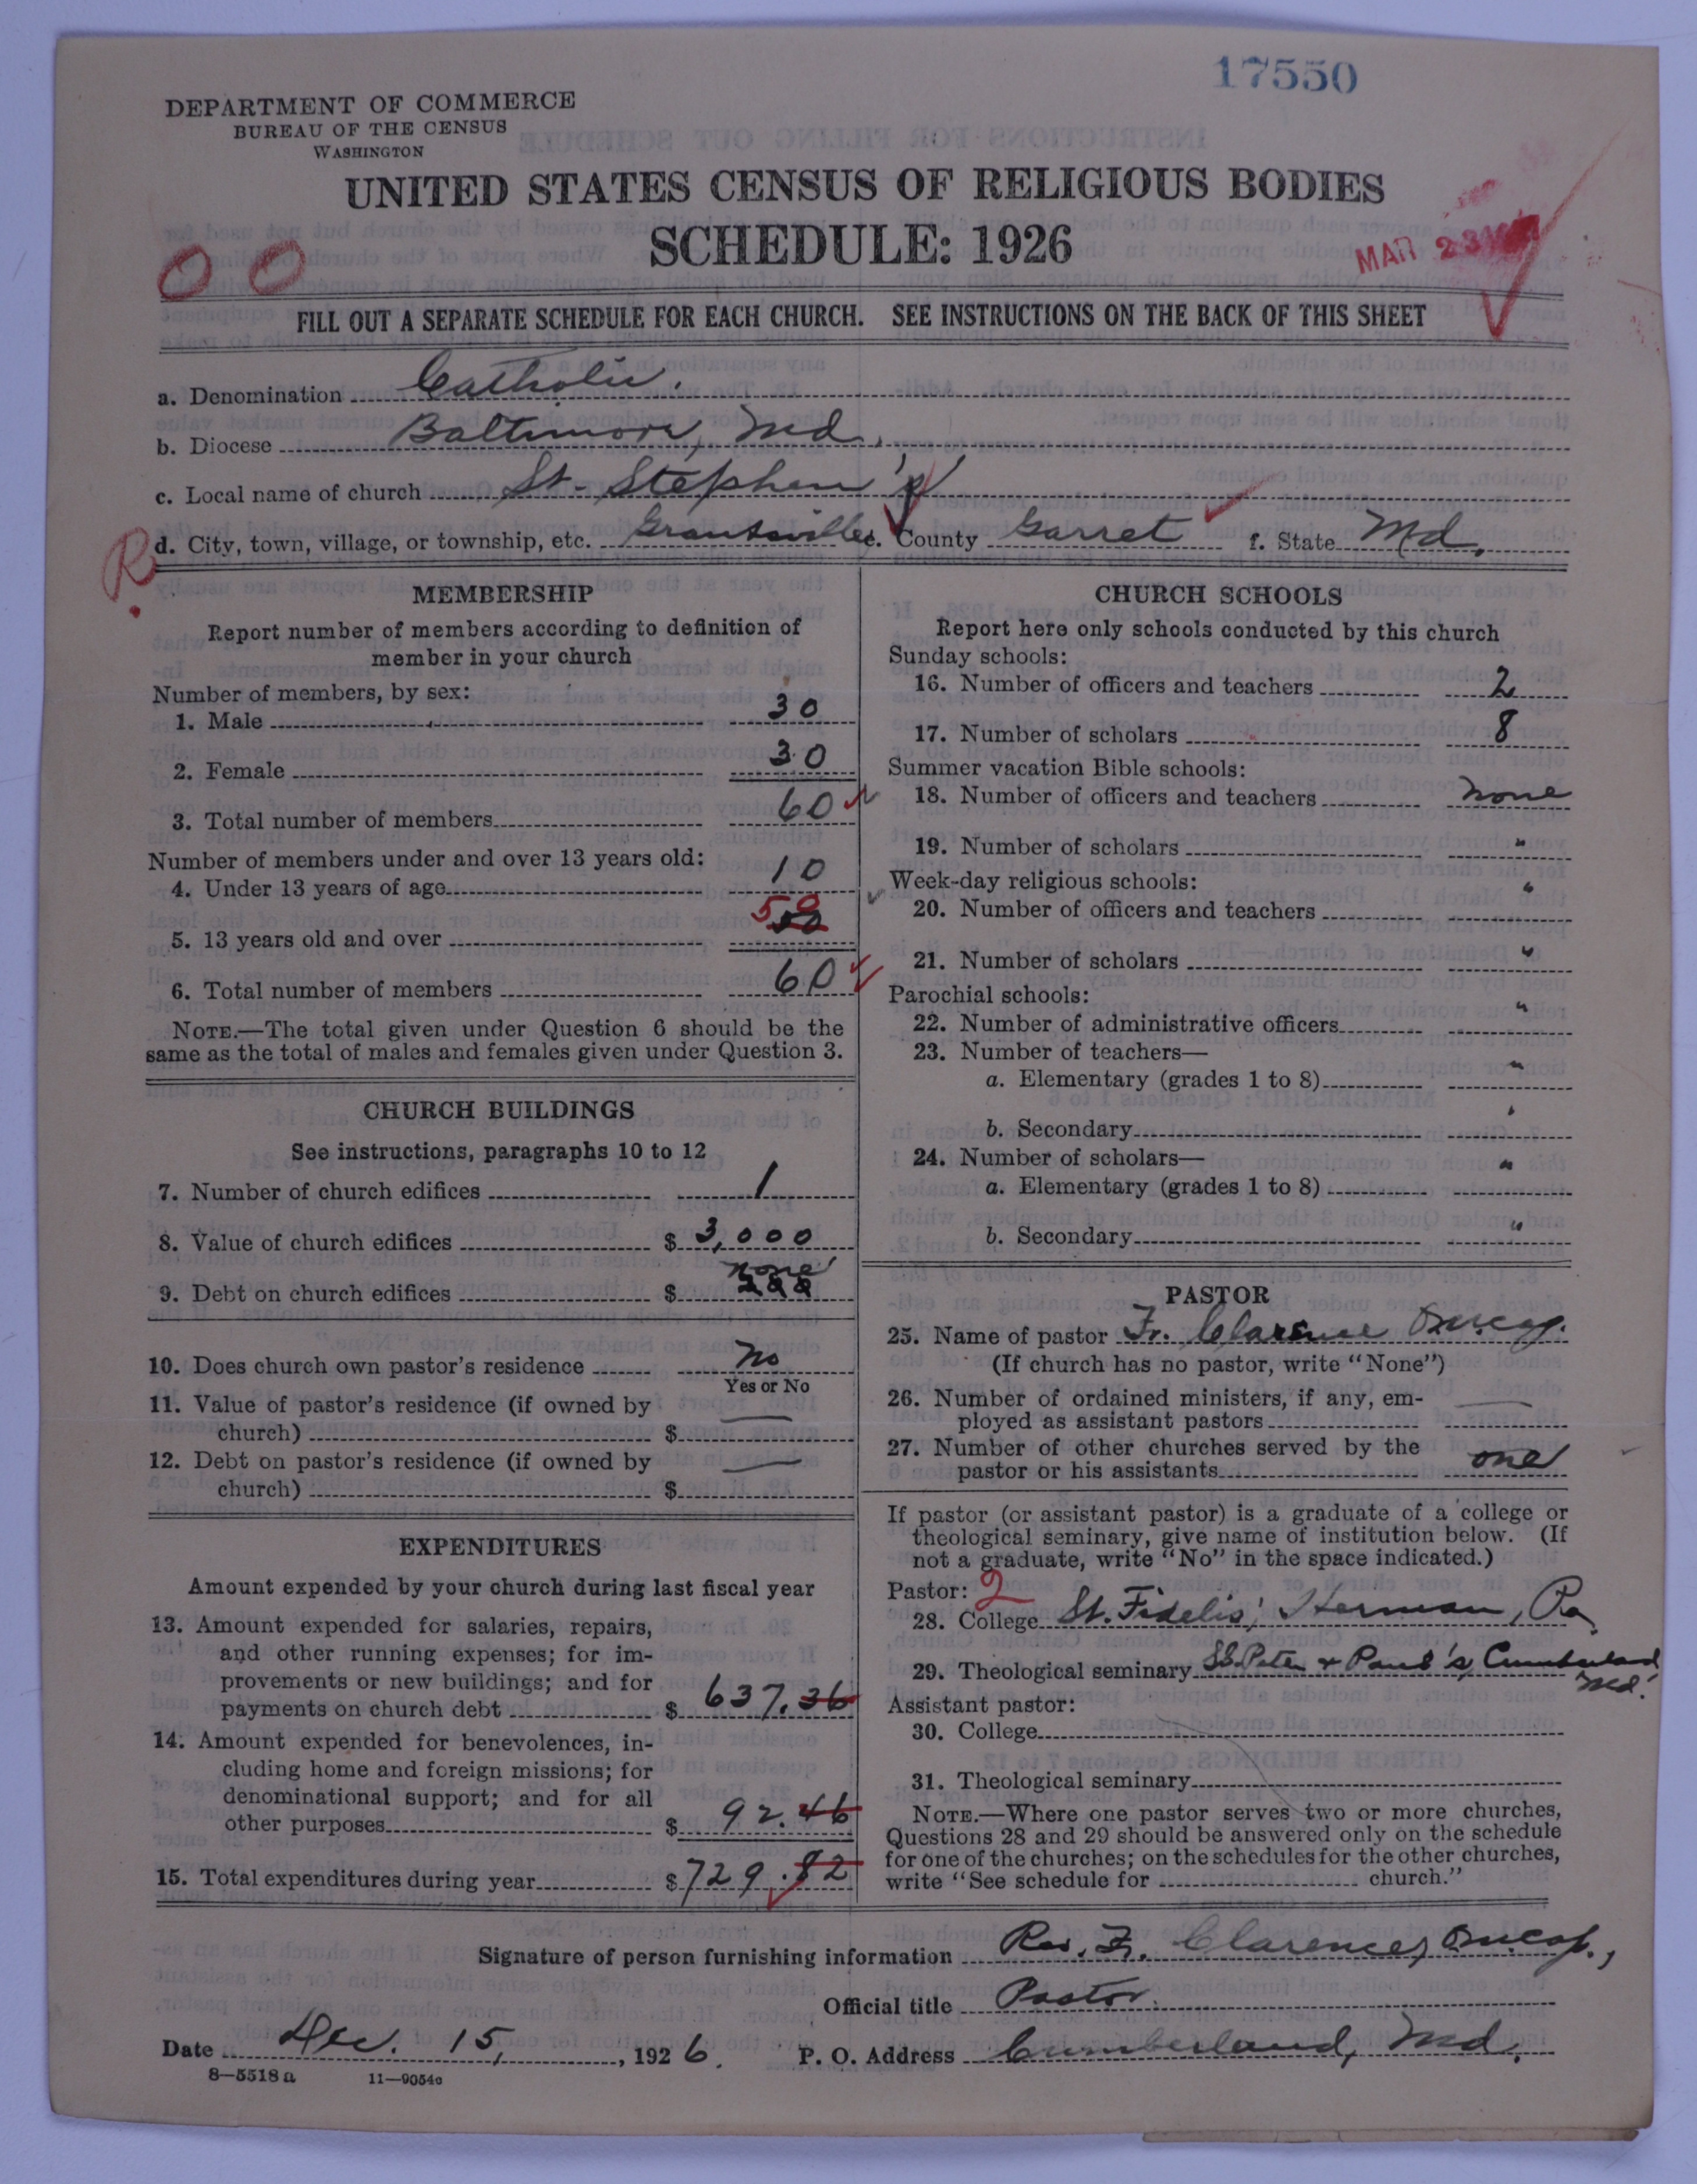 17550
DEPARTMENT OF COMMERCE
BUREAU OF THE CENSUS
WASHINGTON
UNITED STATES CENSUS OF RELIGIOUS BODIES
SCHEDULE: 1926
MAR 23
0 0
FILL OUT A SEPARATE SCHEDULE FOR EACH CHURCH. SEE INSTRUCTIONS ON THE BACK OF THIS SHEET
a. Denomination Catholic.
b. Diocese Baltimore, Md.
c. Local name of church St. Stephen's
R
d. City, town, village, or township, etc. Grantsville e. County Garret f. State Md.
MEMBERSHIP
Report number of members according to definition of
member in your church
Number of members, by sex:
1. Male 30
2. Female 30
3. Total number of members 60
Number of members under and over 13 years old:
4. Under 13 years of age 10
5. 13 years old and over 50
6. Total number of members 60
NOTE.—The total given under Question 6 should be the
same as the total of males and females given under Question 3.
CHURCH BUILDINGS
See instructions, paragraphs 10 to 12
7. Number of church edifices 1
8. Value of church edifices $ 3,000
9. Debt on church edifices $ none
10. Does church own pastor's residence No
Yes or No
11. Value of pastor's residence (if owned by
church) $ —
12. Debt on pastor's residence (if owned by
church) $ —
EXPENDITURES
Amount expended by your church during last fiscal year
13. Amount expended for salaries, repairs,
and other running expenses; for im-
provements or new buildings; and for
payments on church debt $ 637.36
14. Amount expended for benevolences, in-
cluding home and foreign missions; for
denominational support; and for all
other purposes $ 92.46
15. Total expenditures during year $ 729.82
CHURCH SCHOOLS
Report here only schools conducted by this church
Sunday schools:
16. Number of officers and teachers 2
17. Number of scholars 8
Summer vacation Bible schools:
18. Number of officers and teachers none
19. Number of scholars "
Week-day religious schools:
20. Number of officers and teachers "
21. Number of scholars "
Parochial schools:
22. Number of administrative officers "
23. Number of teachers—
a. Elementary (grades 1 to 8) "
b. Secondary "
24. Number of scholars—
a. Elementary (grades 1 to 8) "
b. Secondary "
PASTOR
25. Name of pastor Fr. Clarence O.M.Cap.
(If church has no pastor, write "None")
26. Number of ordained ministers, if any, em-
ployed as assistant pastors —
27. Number of other churches served by the
pastor or his assistants one
If pastor (or assistant pastor) is a graduate of a college or
theological seminary, give name of institution below. (If
not a graduate, write "No" in the space indicated.)
Pastor: 2
28. College St. Fidelis', Herman, Pa.
29. Theological seminary SS. Peter & Paul's, Cumberland
Md.
Assistant pastor:
30. College
31. Theological seminary
NOTE.—Where one pastor serves two or more churches,
Questions 28 and 29 should be answered only on the schedule
for one of the churches; on the schedules for the other churches,
write "See schedule for church."
Signature of person furnishing information Rev. Fr. Clarence, O.M.Cap.,
Official title Pastor.
Date Dec. 15, 1926. P. O. Address Cumberland, Md.
8—5518a 11—9054c